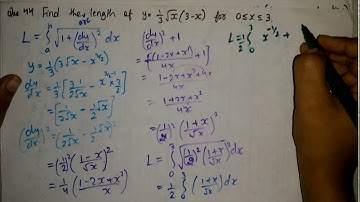 Que 44 Find the length of arc y = 1/3 √x (3-x) for 0≤x≤3.
L = ∫ √(1+(dy/dx)²) dx
y = 1/3 (3√x - x^(3/2))
dy/dx = 1/3 [3 1/(2√x) - x^(1/2) × 3/2]
= 1/3 [3/(2√x) - 3/2 √x]
(dy/dx)² = [1/(2√x) - 1/2 √x]²
= (1/2)² (1-x/√x)²
= 1/4 (1-2x+x²/x)
(dy/dx)² + 1
= [(1-2x+x²)/4x] + 1
= 1-2x+x²+4x/4x
= 1+2x+x²/4x
= (1/2)² (1+x/√x)²
L = ∫₀³ √((1/2)² (1+x/√x)²) dx
= 1/2 ∫₀³ (1+x/√x) dx
L = 1/2 ∫₀ x^(-1/2) +